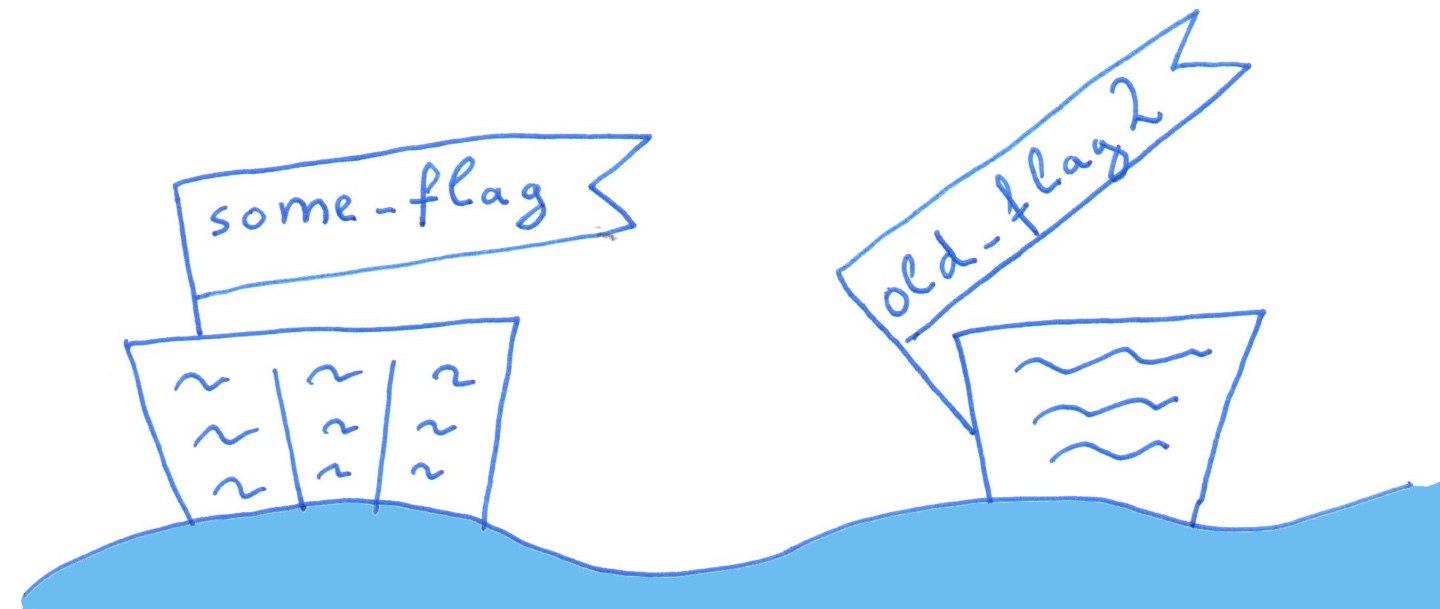 some-flag
old-flag 2